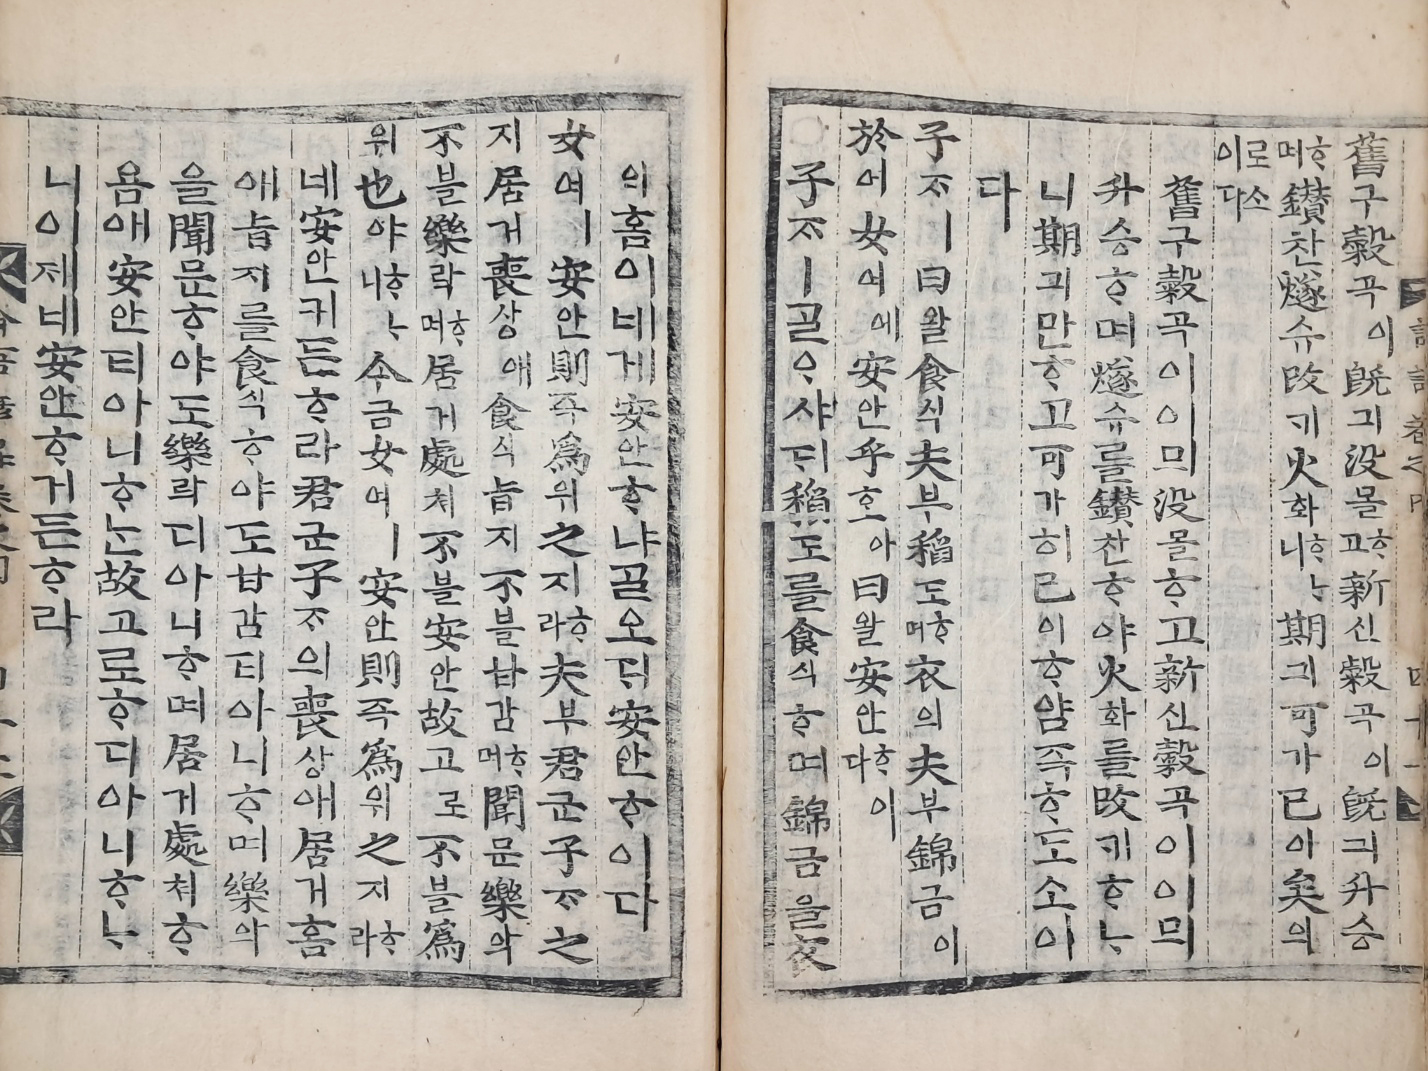 舊구穀곡이旣긔没몰ᄒᆞ고新신穀곡이旣긔升승
ᄒᆞ며鑽찬燧슈改ᄀᆡ火화ᄒᆞᄂᆞ니期긔可가已이矣의
로소이다
舊구穀곡이이믜没몰ᄒᆞ고新신穀곡이이믜
升승ᄒᆞ며燧슈를鑽찬ᄒᆞ야火화를改ᄀᆡᄒᆞᄂᆞ
니期긔만ᄒᆞ고可가히已이ᄒᆞ얌즉ᄒᆞ도소이
다
子ᄌᆞㅣ曰왈食식夫부稻도ᄒᆞ며衣의夫부錦금이
於어女여에安안乎호아曰왈安안ᄒᆞ이다
子ᄌᆞㅣᄀᆞᆯᄋᆞ샤ᄃᆡ稻도를食식ᄒᆞ며錦금을衣
의홈이네게安안ᄒᆞ냐ᄀᆞᆯ오ᄃᆡ安안ᄒᆞ이다
女여ㅣ安안則즉爲위之지ᄒᆞ라夫부君군子ᄌᆞ之
지居거喪상애食식旨지不블甘감ᄒᆞ며聞문樂악
不블樂락ᄒᆞ며居거處쳐不블安안故고로不블爲
위也야ᄒᆞᄂᆞ니今금女여ㅣ安안則즉爲위之지ᄒᆞ라
네安안커든ᄒᆞ라君군子ᄌᆞ의喪상애居거홈
애旨지를食식ᄒᆞ야도甘감티아니ᄒᆞ며樂악
을聞문ᄒᆞ야도樂락디아니ᄒᆞ며居거處쳐ᄒᆞ
욤애安안티아니ᄒᆞᄂᆞᆫ故고로ᄒᆞ디아니ᄒᆞᄂᆞ
니이제네安안ᄒᆞ거든ᄒᆞ라